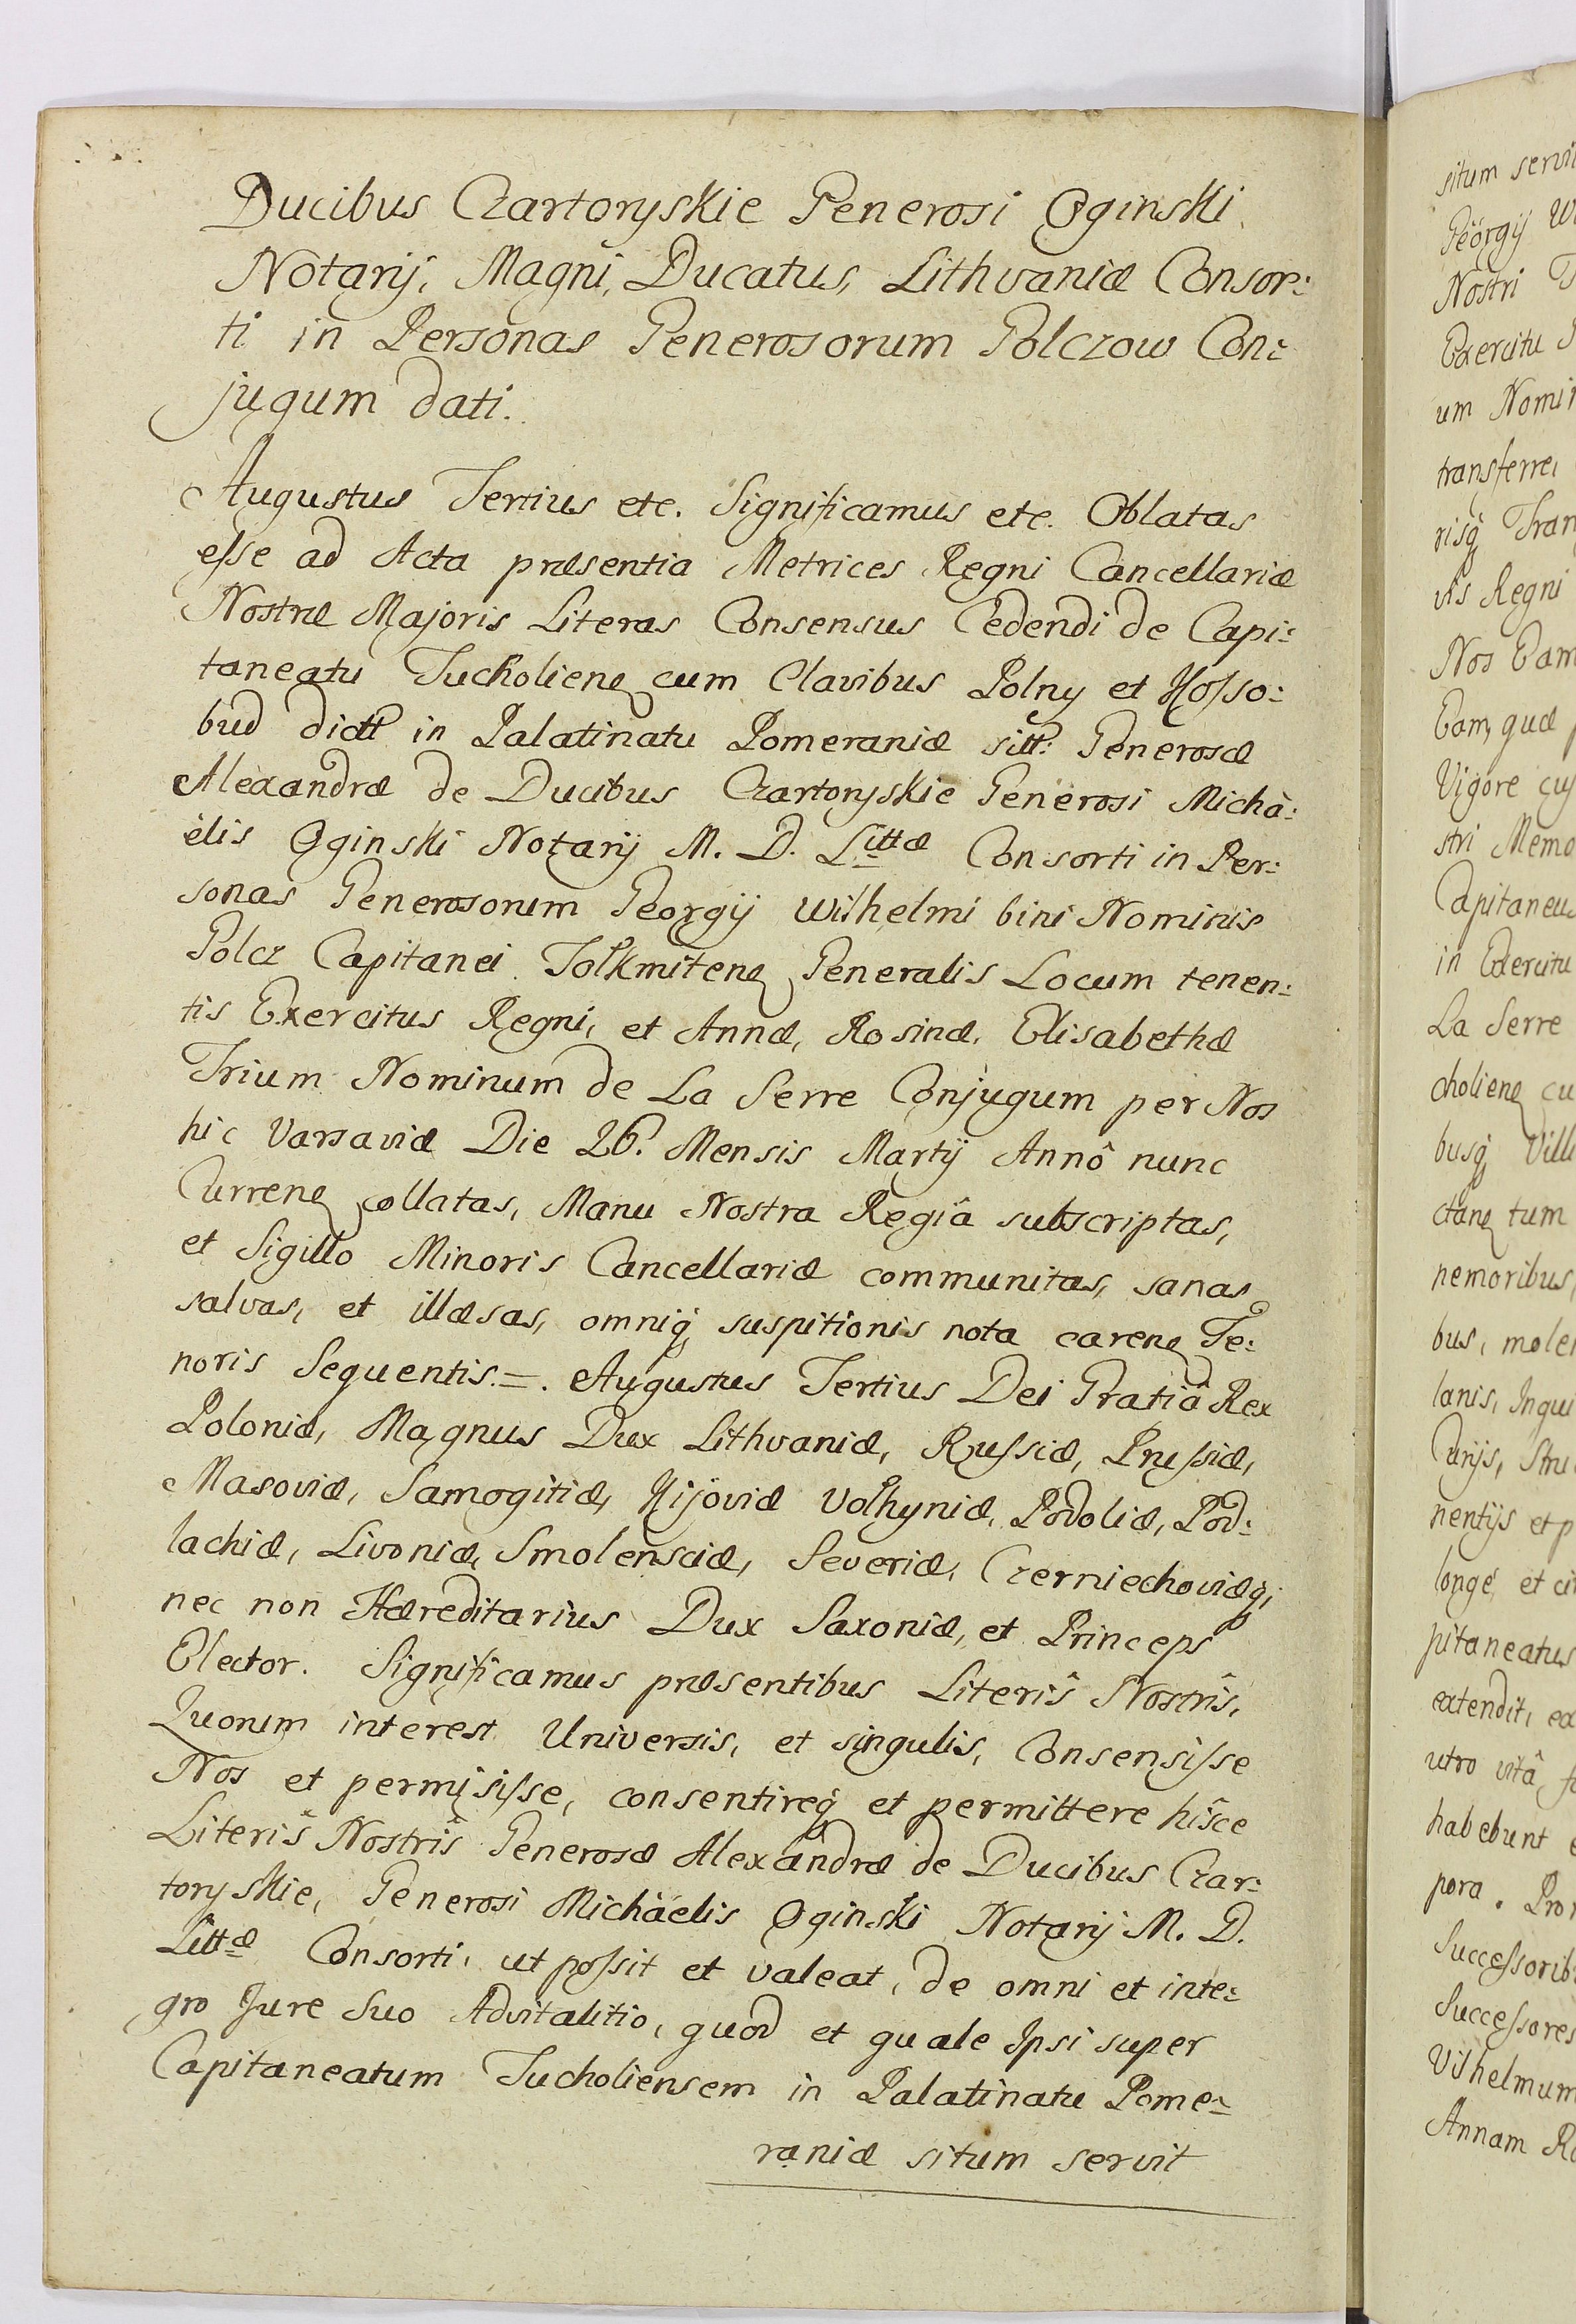 Ducibus Czartoryskie Generosi Oginski
Notarij, Magni, Ducatus, Lithvaniæ Consor:
ti in Personas Generosorum Golczow Con:
jugum dati.
Augustus Tertius etc. Significamus etc. Oblatas
eſse ad Acta præsentia Metrices Regni Cancellariæ
Nostræ Majoris Literas Consensus Cedendi de Capi:
taneatu Tucholienq cum Clavibus Polny et Koſso:
bud dictt in Palatinatu Pomeraniæ sitt: Generosæ
Alexandræ de Ducibus Czartoryskie Generosi Micha:
ëlis Oginski Notarij M. D. Littæ Consorti in Per:
sonas Generosorum Georgij Wilhelmi bini Nominis
Golcz Capitanei Tolkmitenq Generalis Locum tenen:
tis Exercitus Regni, et Annæ, Rosinæ, Elisabethæ
Trium Nominum de La Serre Conjugum per Nos
hic Varsaviæ Die 26. Mensis Martij Annô nunc
Currenq collatas, Manu Nostra Regiâ subscriptas,
et Sigillo Minoris Cancellariæ communitas, sanas
salvas, et illæsas, omniq suspitionis nota carenq Te:
noris Sequentis.=. Augustus Tertius Dei Gratiâ Rex
Poloniæ, Magnus Dux Lithvaniæ, Ruſsiæ, Pruſsiæ,
Masoviæ, Samogitiæ, Kijoviæ Volhyniæ, Podoliæ, Pod:
lachiæ, Livoniæ, Smolensciæ, Severiæ, Czerniechoviæq,
nec non Hæreditarius Dux Saxoniæ, et Princeps
Elector. Significamus præsentibus Literîs Nostrîs,
Quorum interest Universis, et singulis, Consensiſse
Nos et permisiſse, consentireq et permittere hîsce
Literîs Nostrîs Generosæ Alexandræ de Ducibus Czar:
toryskie, Generosi Michaëlis Oginski Notarij M. D.
Littæ Consorti, ut poſsit et valeat, de omni et inte:
gro Jure Suo Advitalitio, quod et quale Ipsi super
Capitaneatum Tucholiensem in Palatinatu Pome:
raniæ situm servit
situm servi
Georgij Wi
Nostri
Exercitu
um Nomi
transferre,
risq Tran
vis Regni
Nos Eam
Eam, quæ
Vigore cuj
stri Memo
Capitaneu
in Exercitu
La Serre
cholienq cu
busq Vill
ctanq tum
nemoribus,
bus, mole
lanis, Inqui
Curijs, Stru
nentijs et p
longe et ci
pitaneatus
extendit, ex
utro vitâ
habebunt
pora. Pro
Succeſsorib
Succeſsores
Vilhelmum
Annam Ro